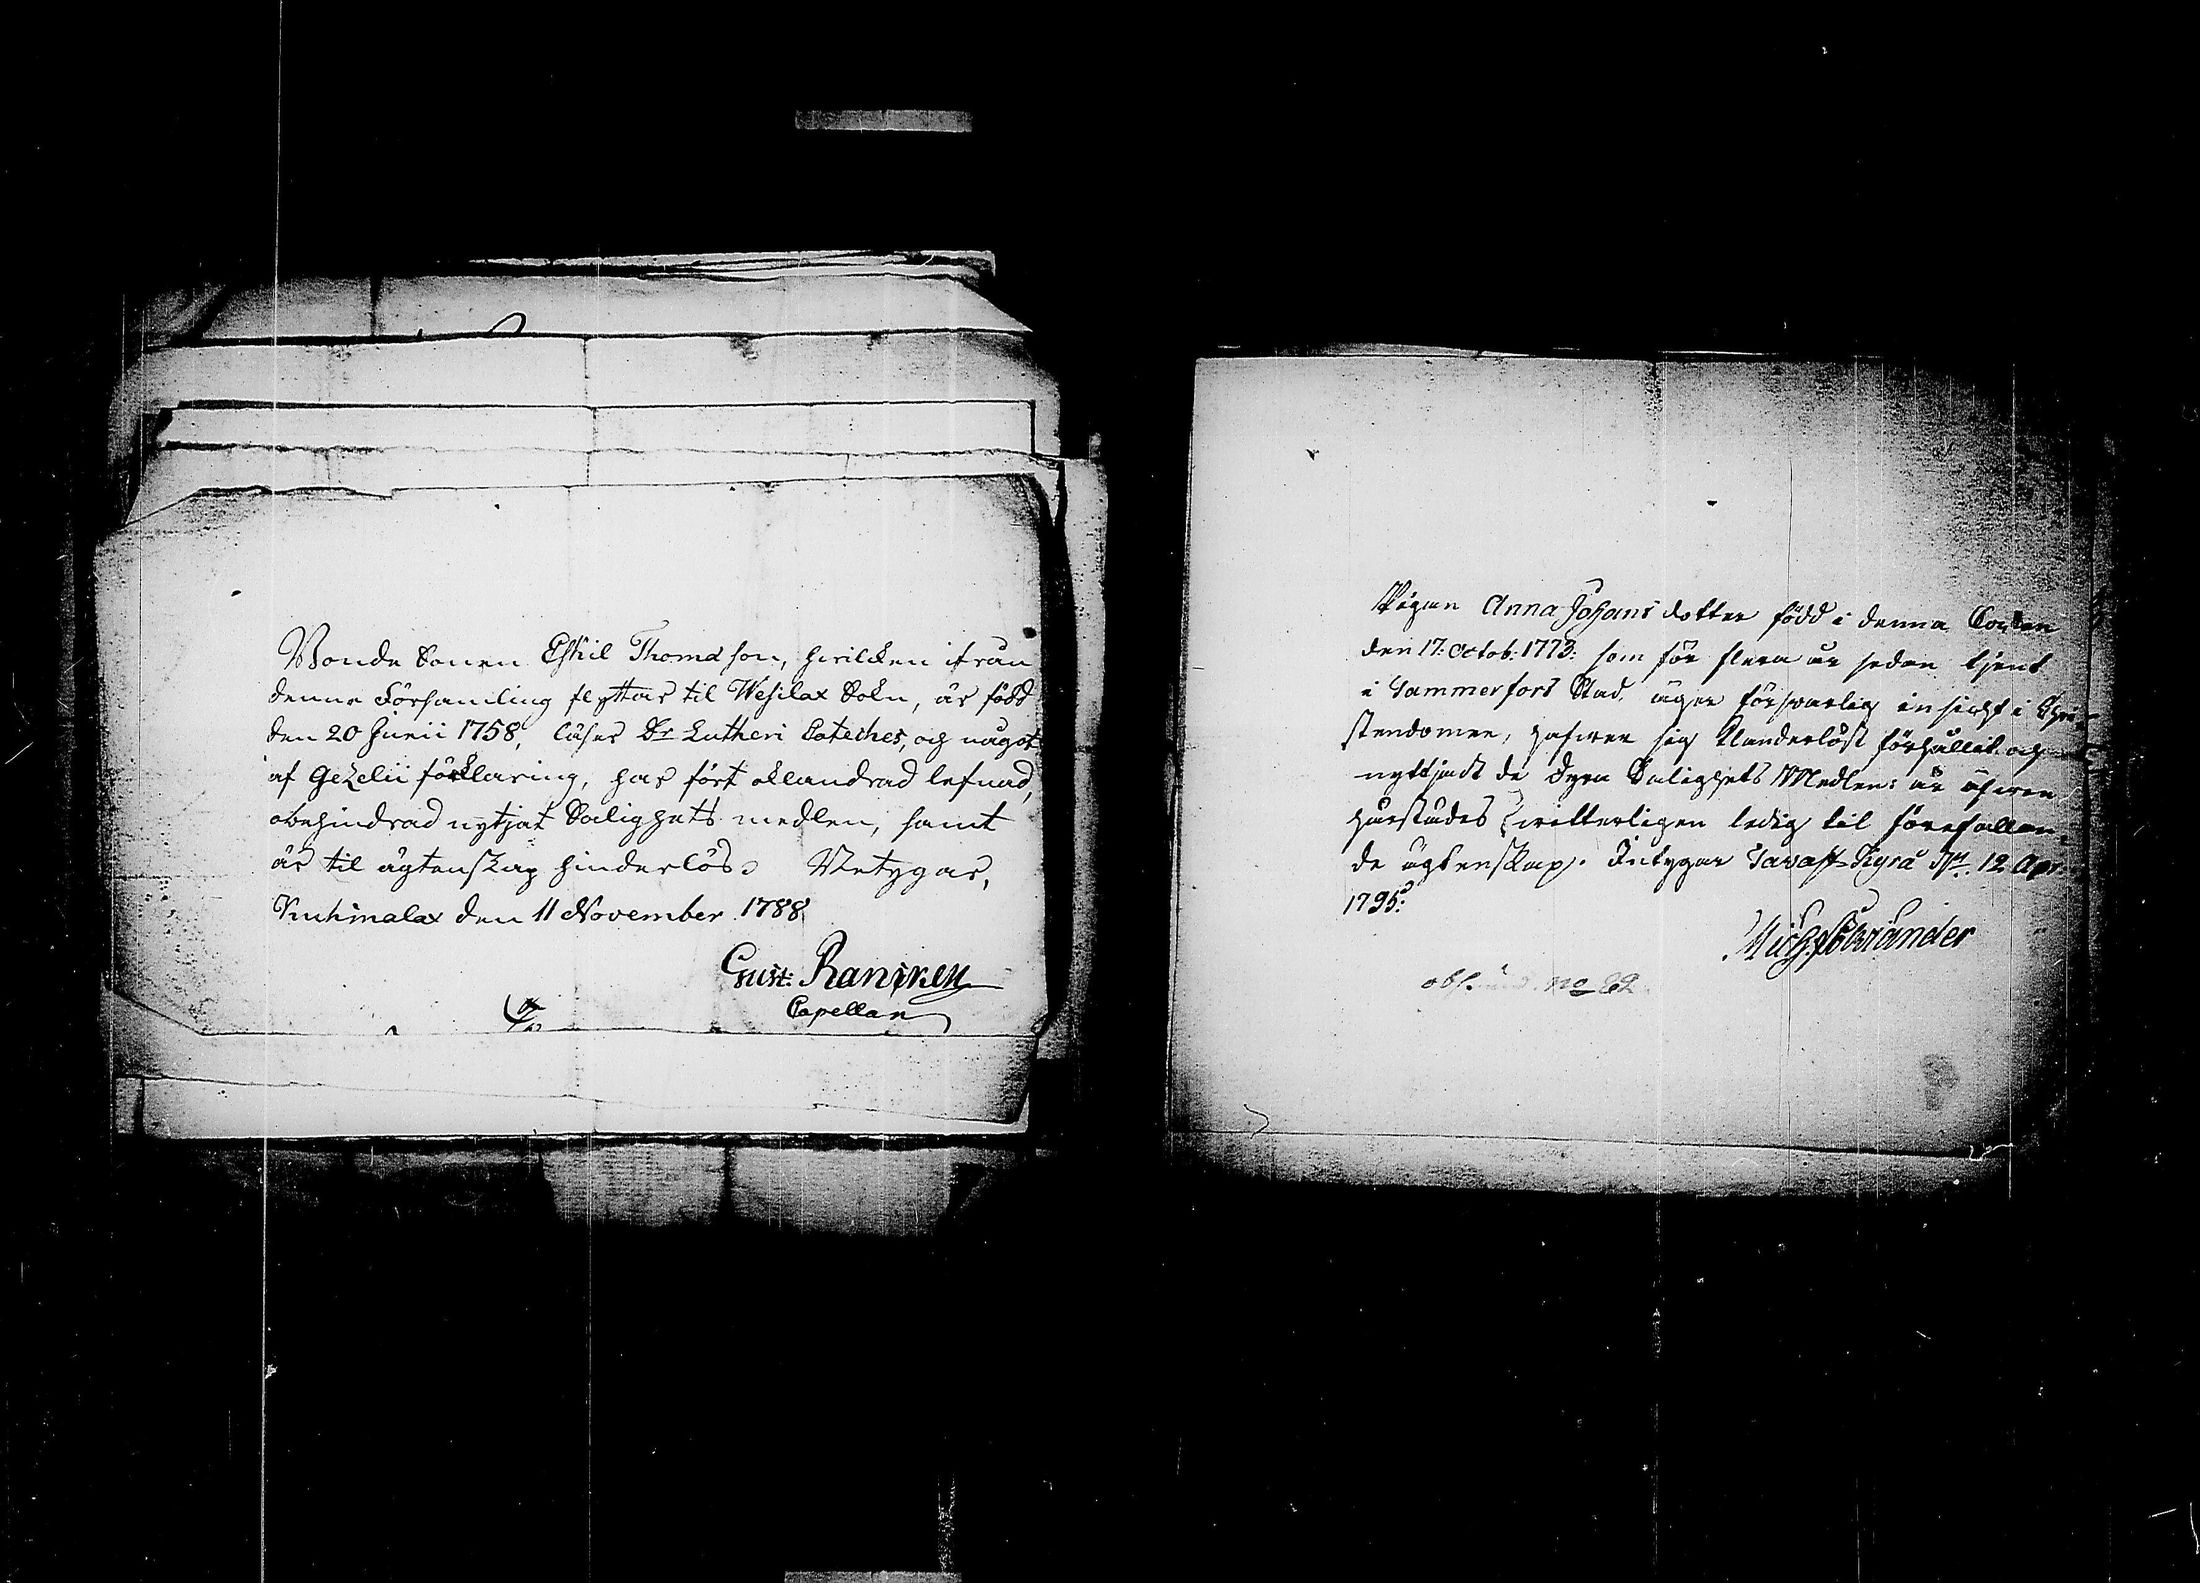 Bonde Sonen Eskil Thomasson, hvilcken ifrån
denne Församling flyttar til Wesilax Sokn, är född
den 20 Junii 1758, läser Dr Lutheri Cateches, och något
af Gezelii förklaring, har fört oklandrad lefnad,
obehindrad nytjat Salighets medlen, samt
är til ägtenskap hinderlös. Betygar,
Kuhmalax den 11 November 1788.
Gust: Rancken
Capellan
Pigan Anna Johans dotter född i denna Socken
den 17. Octob: 1773: som för flera år sedan tjent
i Tammerfors Stad, äger försvarlig insicht i Chri-
stendomen, hafwer sig klanderlöst förhållit och
nyttjadt de dyra Salighets Medlen: är äfwen
härstädes witterligen ledig til förefallan-
de ägtenskap. Intygar Tavast-Kyrö 12 Apr:
1795:
No 82